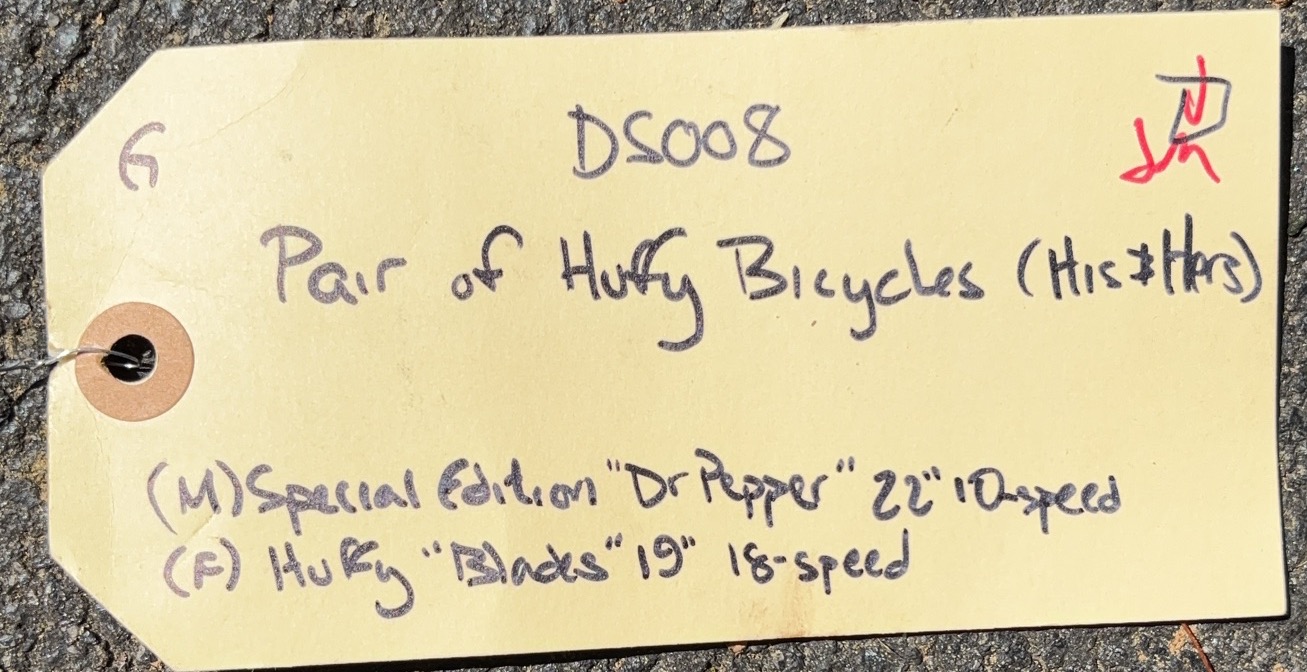 G
DS008
Pair of Huffy Bicycles (His & Hers)
(M) Special Edition "Dr Pepper" 22" 10-speed
(F) Huffy "Blades" 19" 18-speed